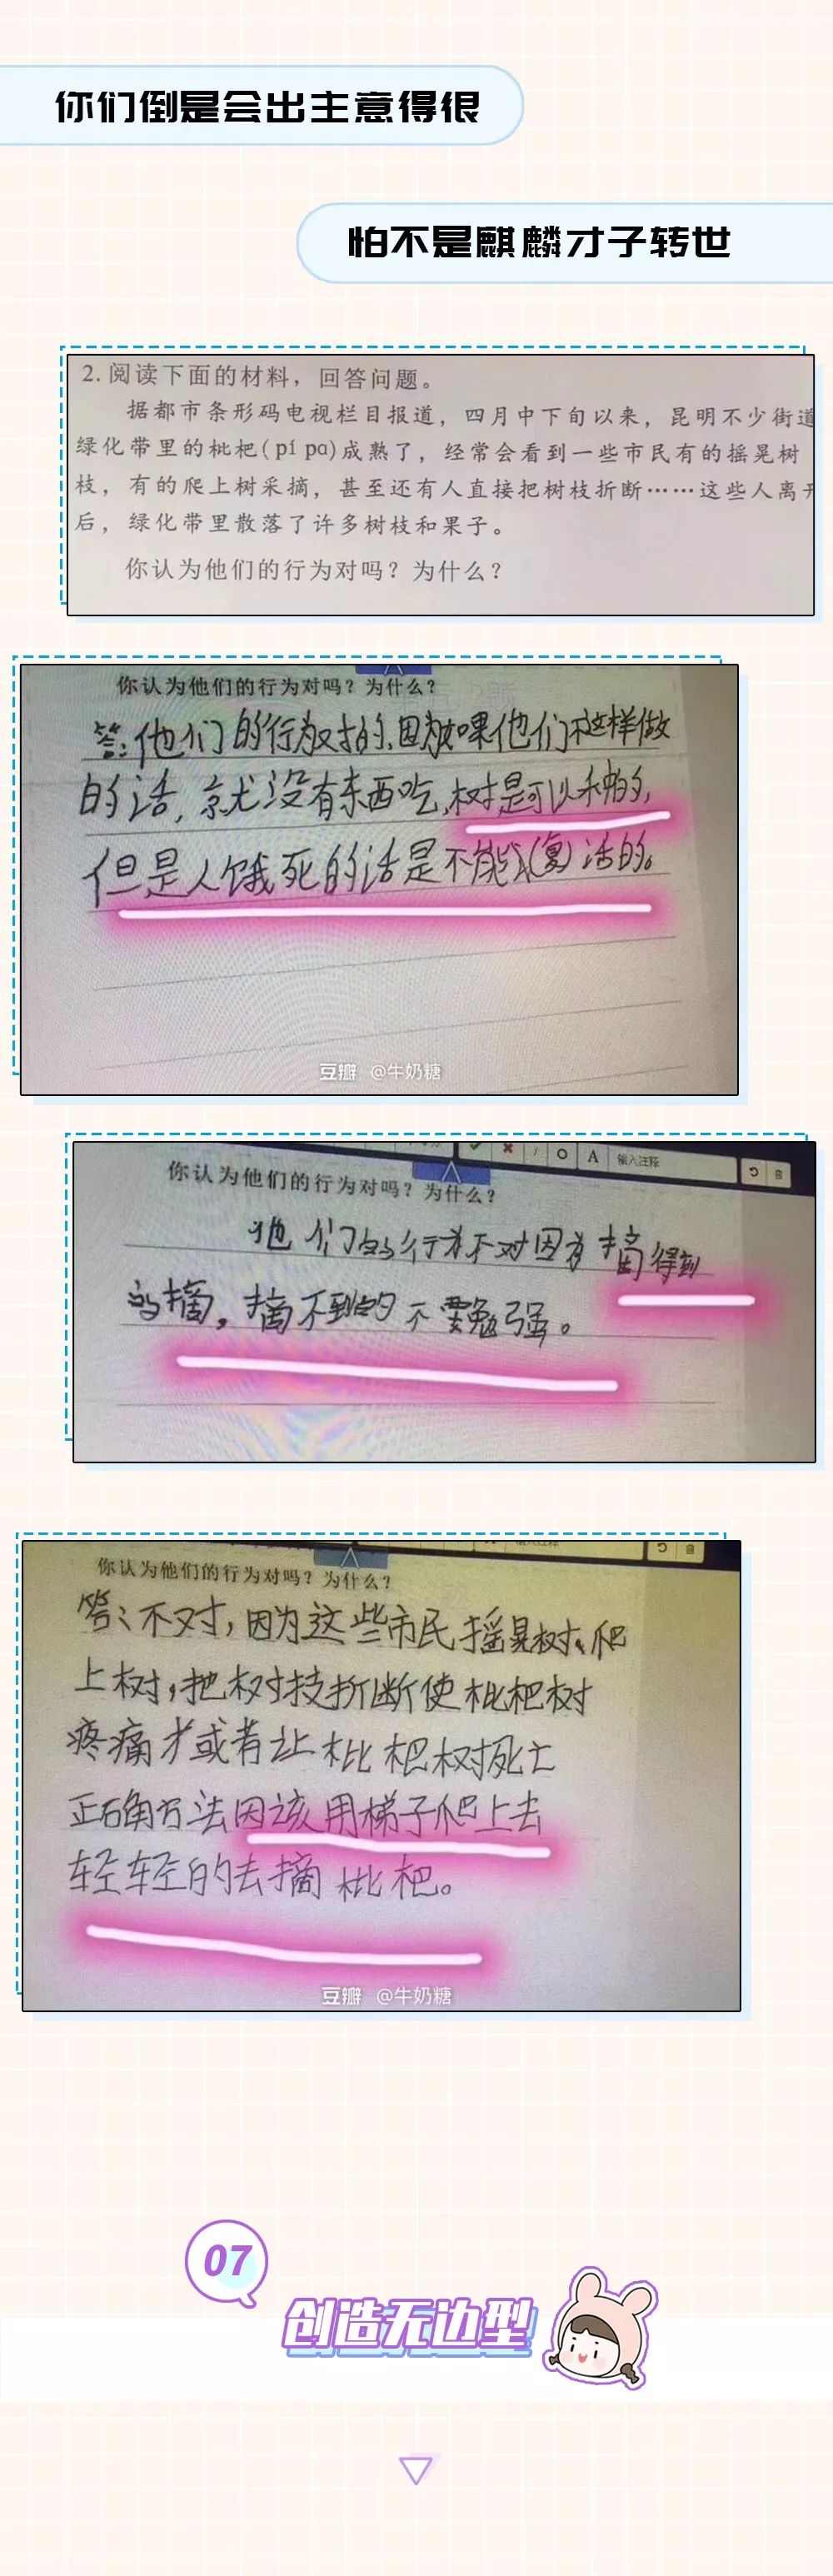 你们倒是会出主意得很
怕不是麒麟才子转世
2. 阅读下面的材料，回答问题。
据都市条形码电视栏目报道，四月中下旬以来，昆明不少街道
绿化带里的枇杷(pí pa)成熟了，经常会看到一些市民有的摇晃树
枝，有的爬上树采摘，甚至还有人直接把树枝折断……这些人离开
后，绿化带里散落了许多树枝和果子。
你认为他们的行为对吗？为什么？
你认为他们的行为对吗？为什么？
答：他们的行为对的，因为如果他们不这样做
的话，就没有东西吃，树是可以种的，
但是人饿死的话是不能(复)活的。
豆瓣 @牛奶糖
A 输入注释
你认为他们的行为对吗？为什么？
他们的行为不对因为摘得到
的摘，摘不到的不要勉强。
你认为他们的行为对吗？为什么？
答：不对，因为这些市民摇晃树、爬
上树，把树技折断使枇杷树
疼痛才或者让枇杷树死亡
正确方法因该用梯子爬上去
轻轻的去摘枇杷。
豆瓣 @牛奶糖
07
创造无边型